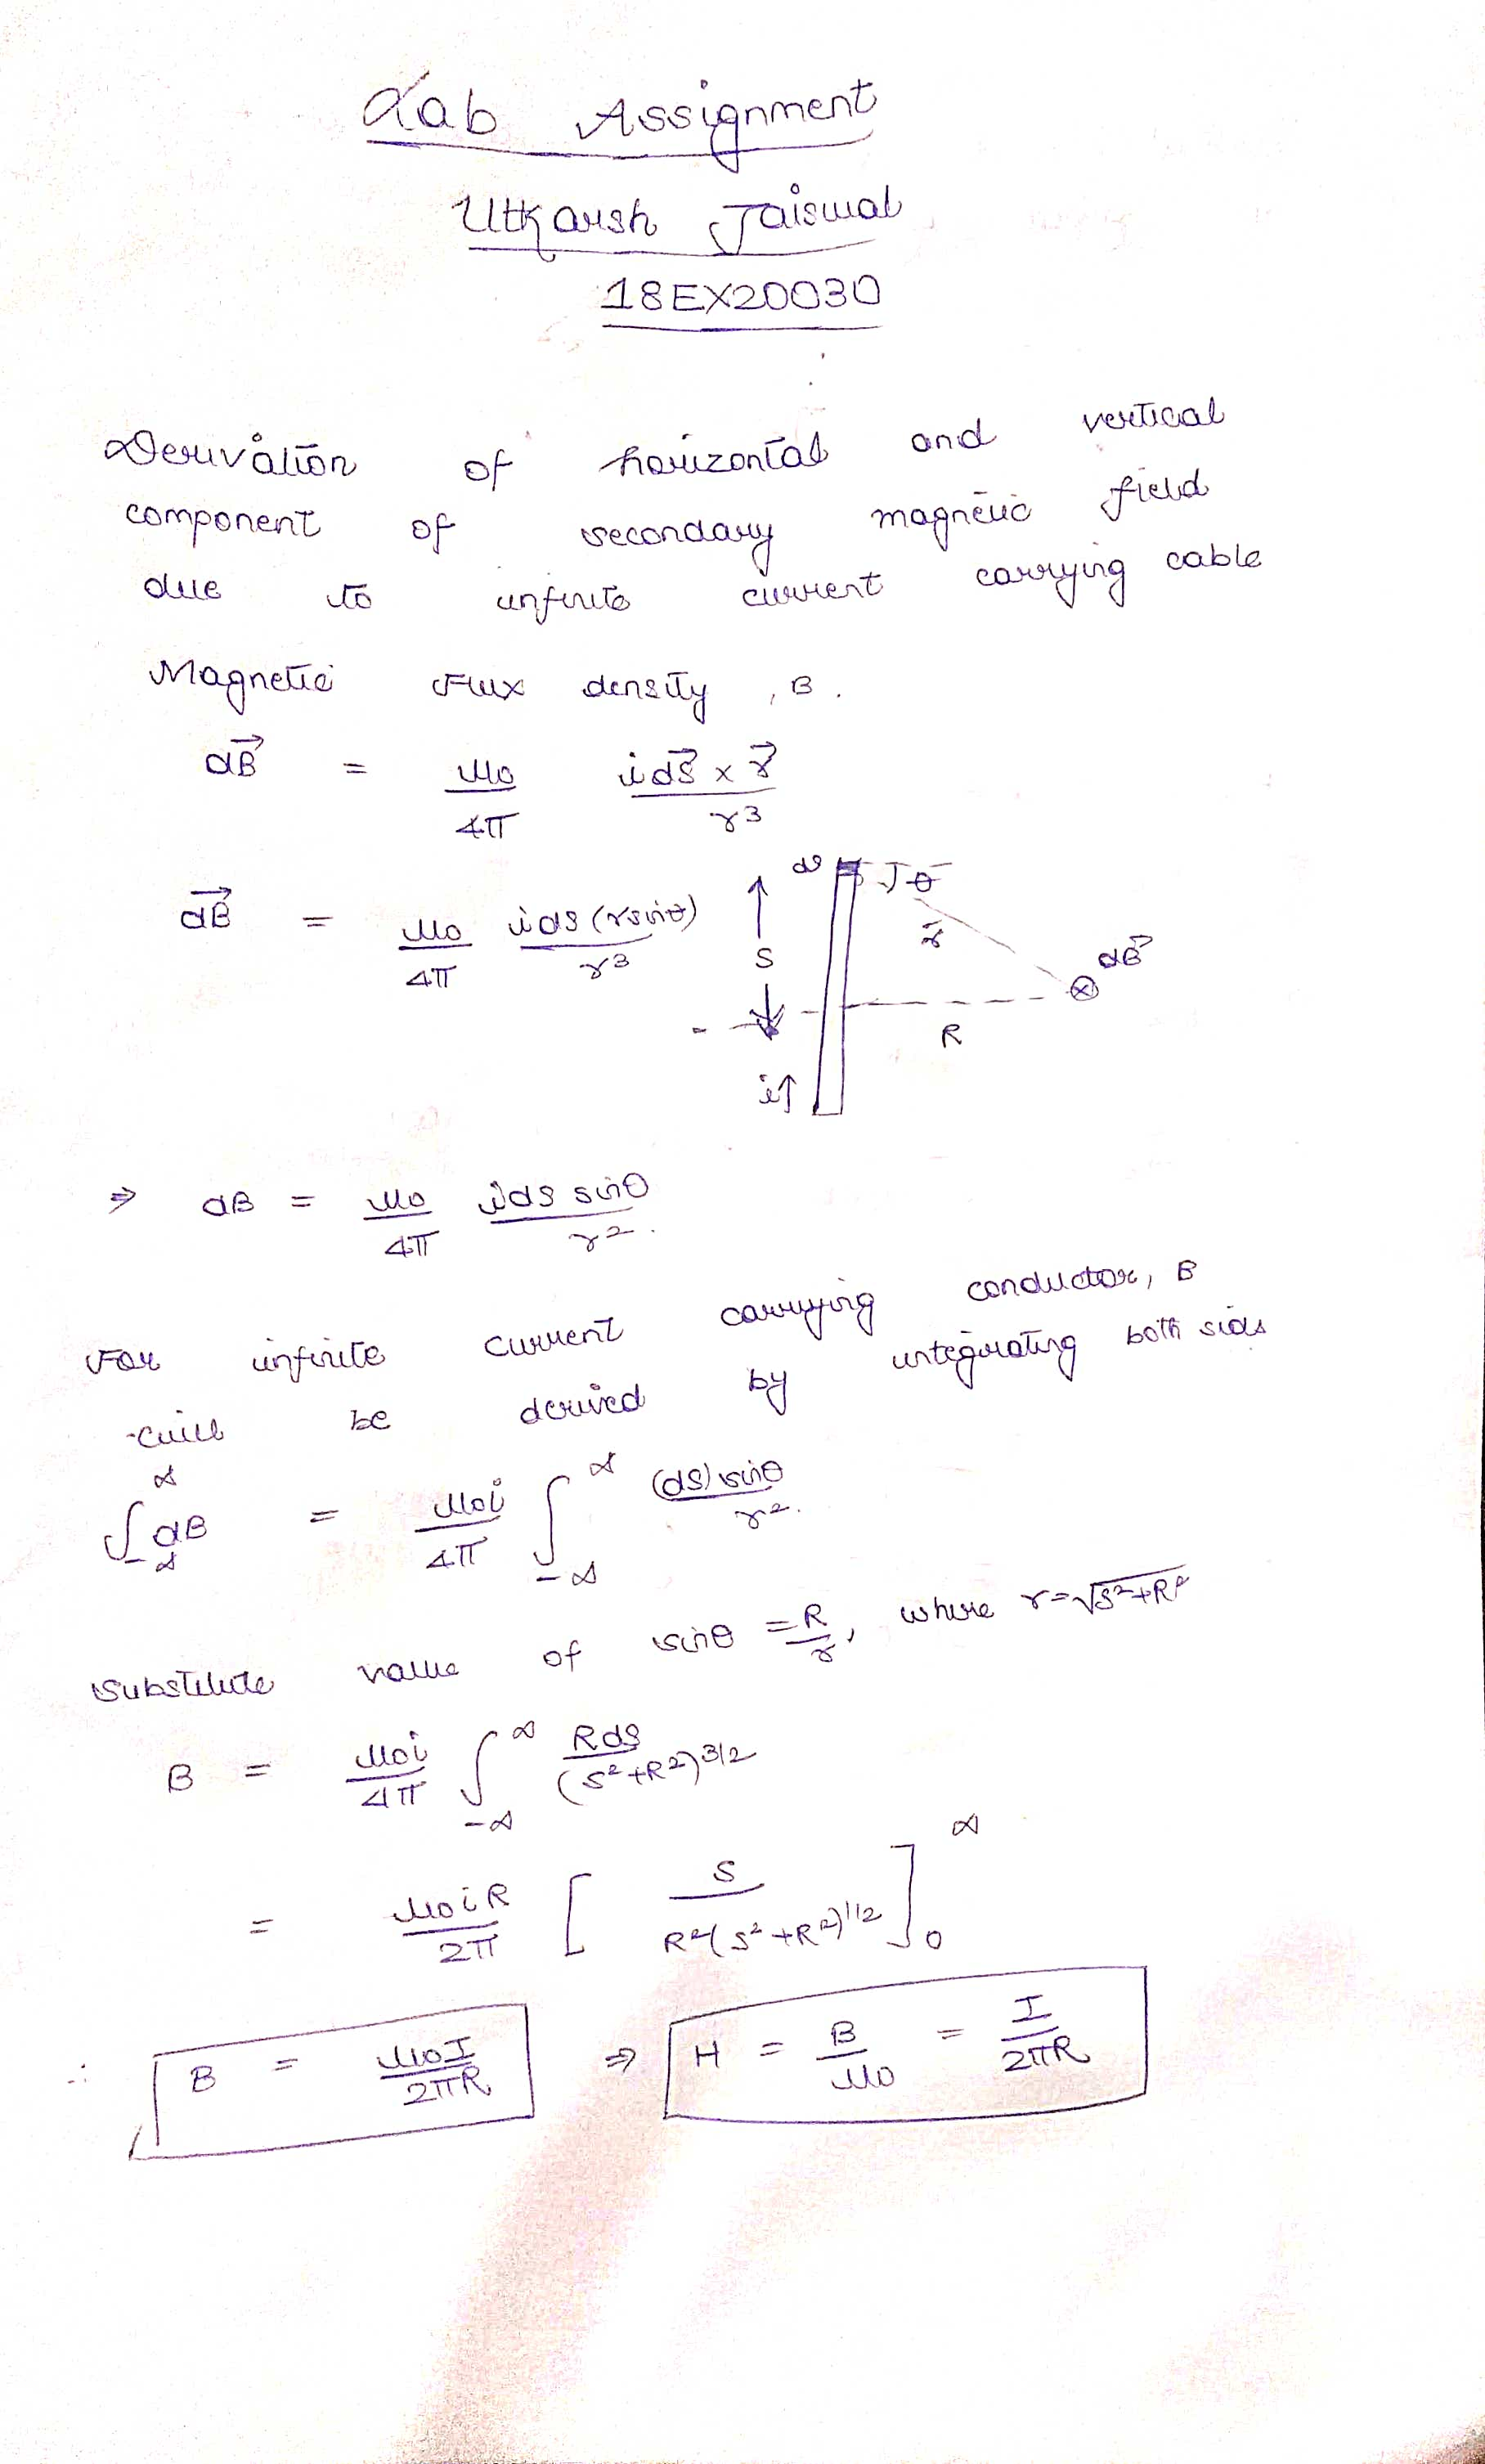 Lab Assignment
Utkarsh Jaiswal
18EX20030
Derivation of horizontal and vertical
component of secondary magnetic field
due to infinite current carrying cable
Magnetic Flux density, B.
dB⃗ = μ0/4π ids⃗ × r⃗/r³
dB⃗ = μ0/4π ids(rsinθ)/r³
ds θ
r⃗
S
dB⃗
R
i↑
⇒ dB = μ0/4π ids sinθ/r².
For infinite current carrying conductor, B
will be derived by integrating both sides
∫_{-∞}^{∞} dB = μ0i/4π ∫_{-∞}^{∞} (ds)sinθ/r².
Substitute value of sinθ = R/r, where r=√S²+R²
B = μ0i/4π ∫_{-∞}^{∞} Rds/(S²+R²)^{3/2}
= μ0iR/2π [S/R²(S²+R²)^{1/2}]_0^∞
∴ B = μ0I/2πR ⇒ H = B/μ0 = I/2πR